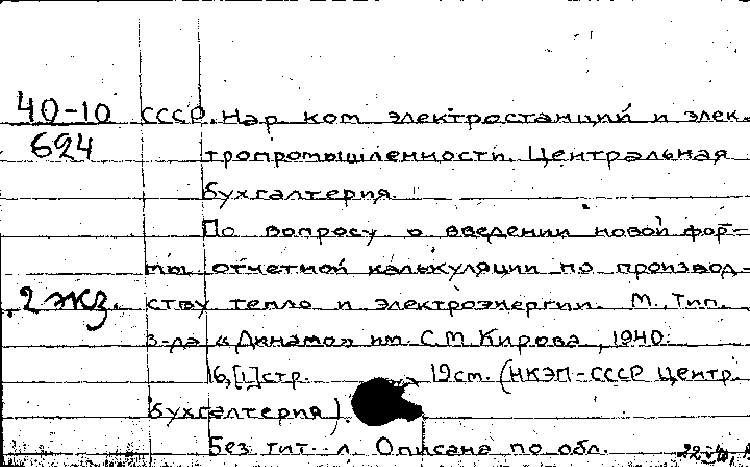 40-10 СССР. Нар. ком. электростанций и элек-
694 тропромышленности. Центральная
бухгалтерия.
По вопросу о введении новой фор-
мы отчетной калькуляции по производ-
2 экз. ству тепло и электроэнергии. М., Тип.
з-да "Динамо" им. С.М. Кирова, 1940.
16,[1] стр. 19 см. (НКЭП-СССР Центр.
бухгалтерия).
Без тит. л. Описана по обл.